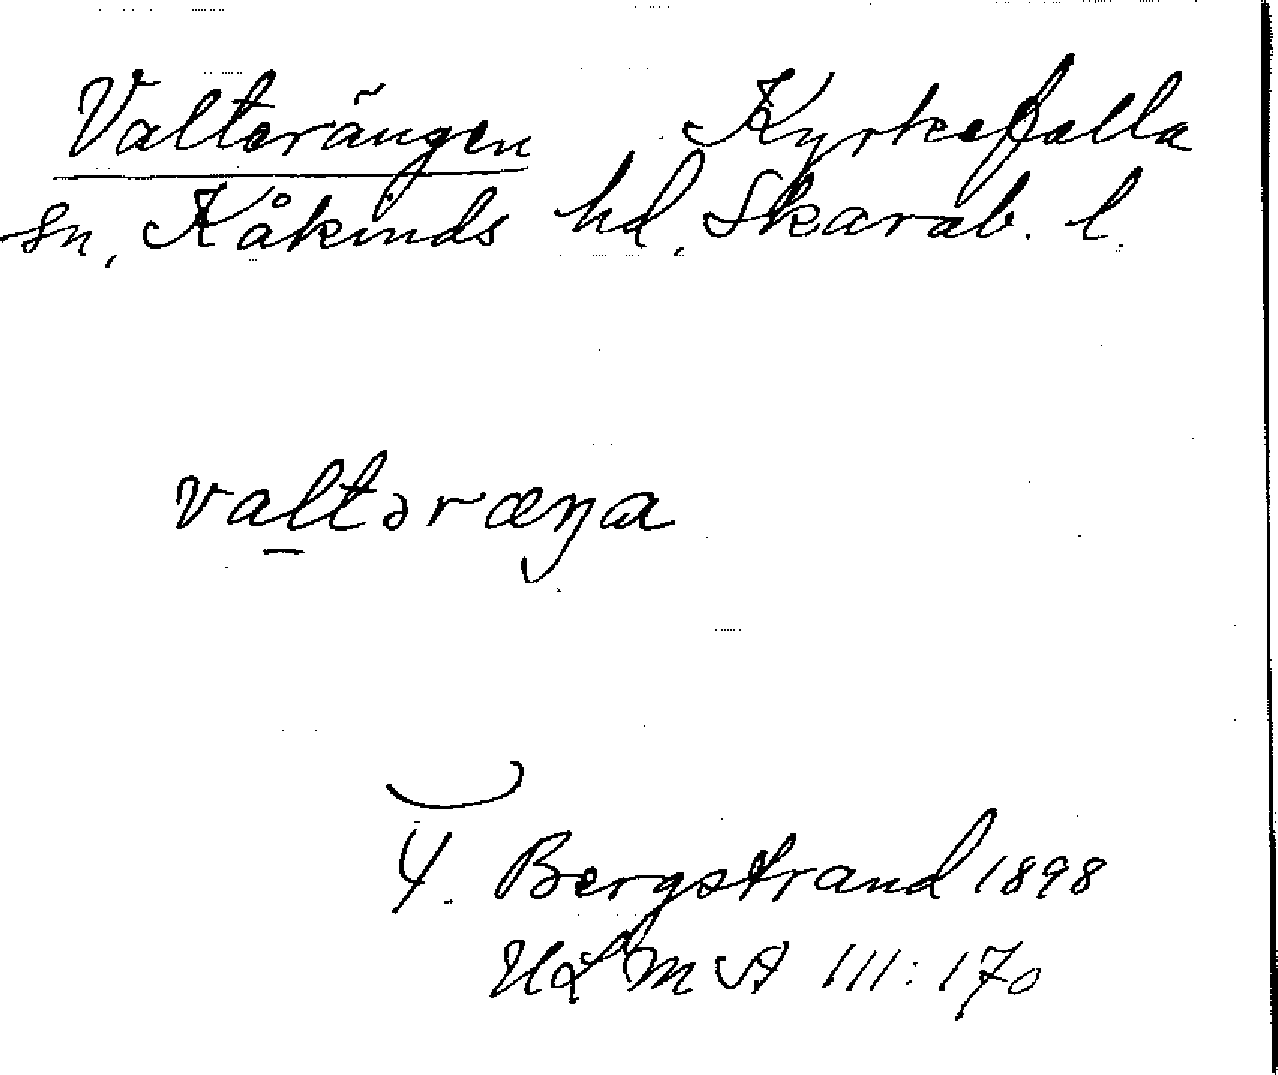 Valterängen Kyrkefalla
sn, Kåkinds hd, Skarab. l.
valtəræŋa
Y. Bergstrand 1898
ULMA 111:170